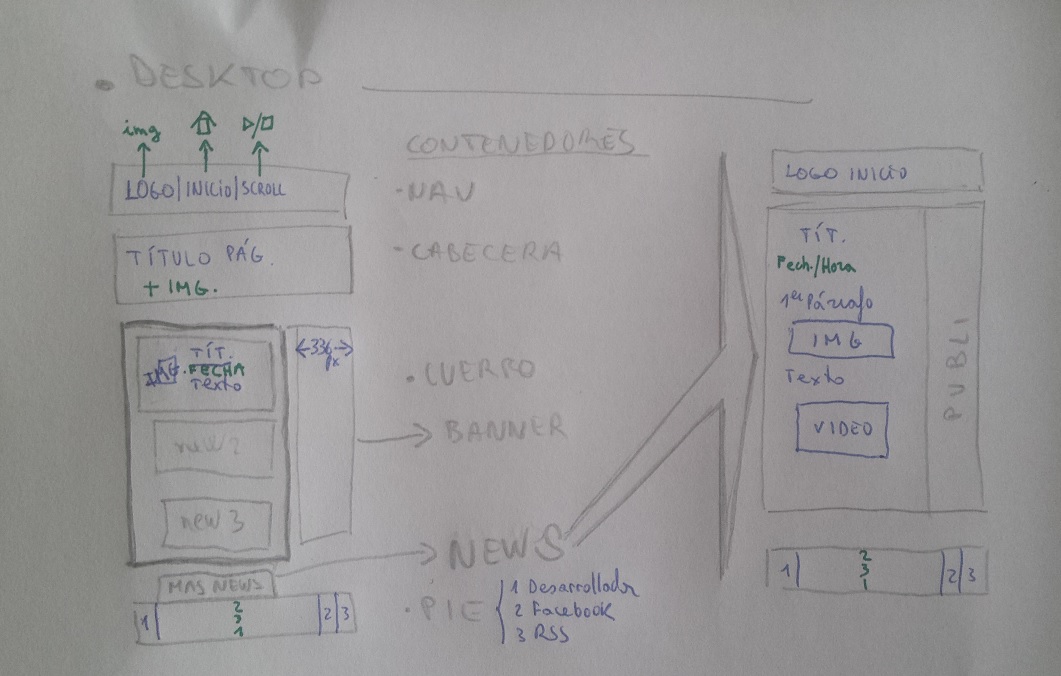 • DESKTOP
img
▷/□
LOGO|INICIO|SCROLL
TÍTULO PÁG.
+ IMG.
TÍT.
IMG. FECHA
Texto
new 2
new 3
MAS NEWS
1
2
3
1
2 3
←336→
px
CONTENEDORES
- NAV
- CABECERA
• CUERPO
BANNER
NEWS
• PIE
1 Desarrollador
2 Facebook
3 RSS
LOGO INICIO
TÍT.
Fech./Hora
1er Párrafo
IMG
Texto
VIDEO
PUBLI
1
2
3
1
2 3